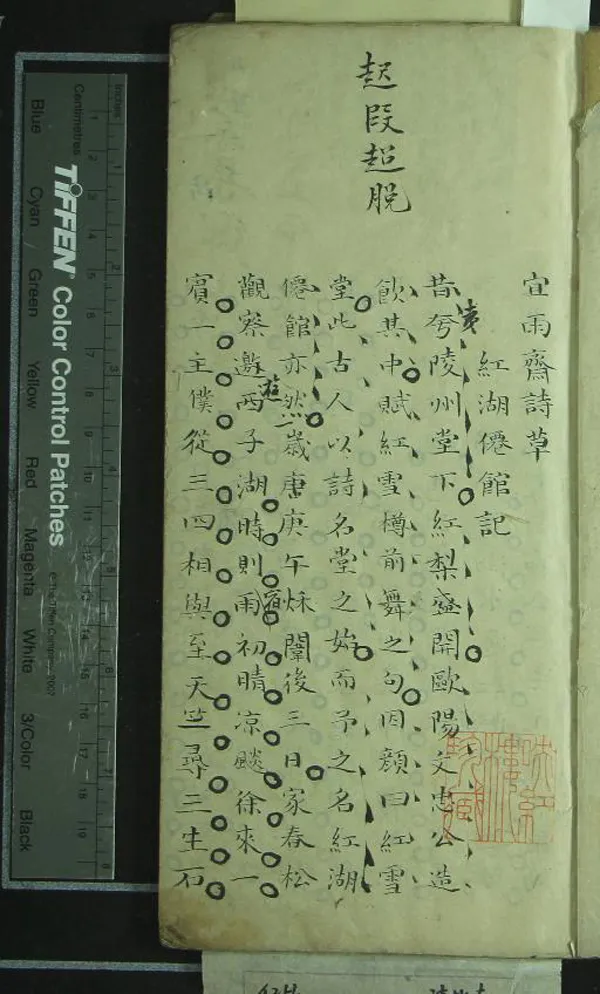 起段超脱
宜雨齋詩草
紅湖僊館記
昔夸陵州堂下紅梨盛開歐陽文忠公造
夷
飲其中賦紅雪樽前舞之句因顏曰紅雪
堂此古人以詩名堂之始而予之名紅湖
僊館亦然歲唐庚午秌闈後三日家春松
觀察邀西子湖時則雨初晴凉颸徐來一
遊
宿
賓一主僕從三四相與至天竺尋三生石
Inches
Centimetres
TIFFEN Color Control Patches
© The Tiffen Company, 2007
Blue
Cyan
Green
Yellow
Red
Magenta
White
3/Color
Black